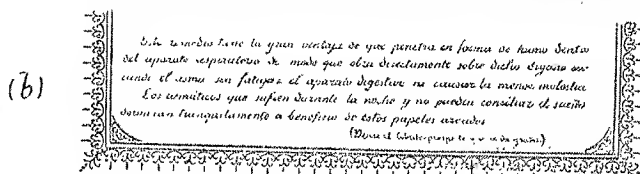 (b)
Este remedio tiene la gran ventaja de que penetra en forma de humo dentro
del aparato respiratorio de modo que obra directamente sobre dichos órganos
el asma sin fatigar el aparato digestivo ni causar la menor molestia
Los asmáticos que sufren durante la noche y no pueden conciliar el sueño
dormirán tranquilamente a beneficio de estos papeles azoados